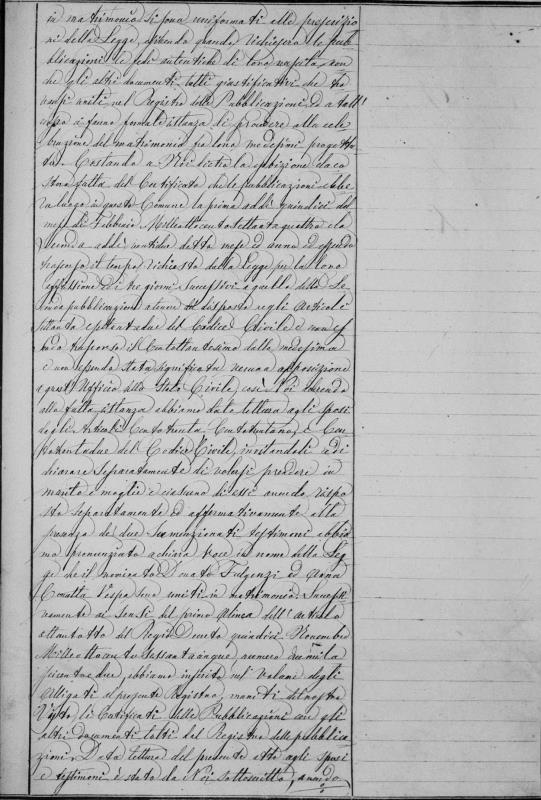 in matrimonio si sono uniformati alle prescrizio
ni della Legge, essendo grande richiesero le pub
blicazioni le fedi autentiche di loro nascita, non
che gli altri documenti tutti giustificativi che tro
vansi uniti nel Registro delle Pubblicazioni ed a tale
a fanno formale istanza di procedere alla cele
brazione del matrimonio fra loro medesimi progetta
to. Constando a Noi dietro la esibizione da
fatta del Certificato che le pubblicazioni ebbe
ro luogo in questo Comune la prima addì quindici del
mese di Febbraio Milleottocentosettantaquattro e la
seconda addì ventidue detto mese ed anno ed essendo
trascorso il tempo richiesto dalla Legge per la loro
affissione ed i tre giorni successivi a quello della Se
conda pubblicazione a tenore del disposto negli Articoli
settanta e settantadue del Codice Civile e non es
sendo trascorso il Centottantesimo dalla medesima
e non essendo stata significata nessuna opposizione
a quest'Ufficio dello Stato Civile, così Noi aderendo
alla fatta istanza abbiamo dato lettura agli sposi
degli Articoli Centotrenta, Centotrentuno, e Cen
totrentadue del Codice Civile, invitandoli a di
chiarare separatamente di volersi prendere in
marito e moglie e ciascuno di essi avendo rispo
sto separatamente ed affermativamente alla
presenza de' due summenzionati testimoni abbia
mo pronunziato a chiara voce in nome della Leg
ge che il nominato Donato Fulgenzi ed Anna
sono uniti in matrimonio. Successi
vamente ai sensi del primo Alinea dell'articolo
ottantotto del Regio Decreto quindici Novembre
Milleottocentosessantacinque, numero duemila
seicentodue, abbiamo inserito nel Volume degli
Allegati il presente Registro, muniti del nostro
Visto li Certificati delle Pubblicazioni con gli
altri documenti tolti dal Registro delle pubblica
zioni. Data lettura del presente atto agli sposi
e testimoni è stato da Noi sottoscritto, avendo